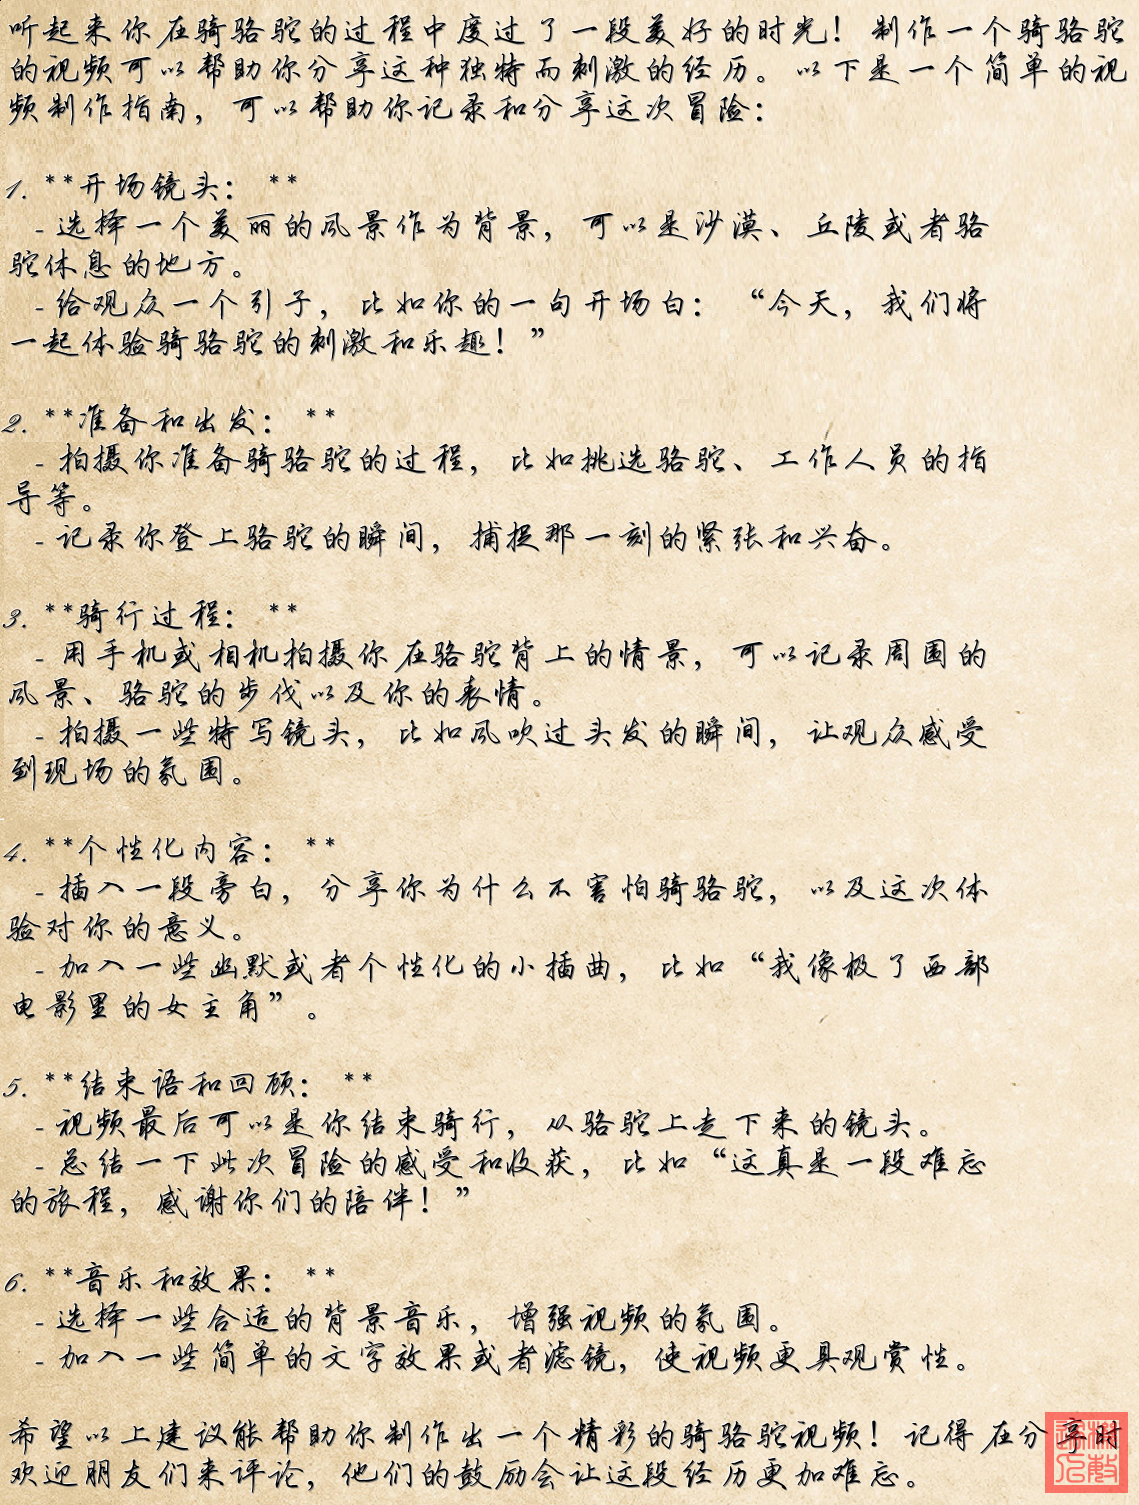 听起来你在骑骆驼的过程中度过了一段美好的时光！制作一个骑骆驼
的视频可以帮助你分享这种独特而刺激的经历。以下是一个简单的视
频制作指南，可以帮助你记录和分享这次冒险：
1. **开场镜头：**
- 选择一个美丽的风景作为背景，可以是沙漠、丘陵或者骆
驼休息的地方。
- 给观众一个引子，比如你的一句开场白：“今天，我们将
一起体验骑骆驼的刺激和乐趣！”
2. **准备和出发：**
- 拍摄你准备骑骆驼的过程，比如挑选骆驼、工作人员的指
导等。
- 记录你登上骆驼的瞬间，捕捉那一刻的紧张和兴奋。
3. **骑行过程：**
- 用手机或相机拍摄你在骆驼背上的情景，可以记录周围的
风景、骆驼的步伐以及你的表情。
- 拍摄一些特写镜头，比如风吹过头发的瞬间，让观众感受
到现场的氛围。
4. **个性化内容：**
- 插入一段旁白，分享你为什么不害怕骑骆驼，以及这次体
验对你的意义。
- 加入一些幽默或者个性化的小插曲，比如“我像极了西部
电影里的女主角”。
5. **结束语和回顾：**
- 视频最后可以是你结束骑行，从骆驼上走下来的镜头。
- 总结一下此次冒险的感受和收获，比如“这真是一段难忘
的旅程，感谢你们的陪伴！”
6. **音乐和效果：**
- 选择一些合适的背景音乐，增强视频的氛围。
- 加入一些简单的文字效果或者滤镜，使视频更具观赏性。
希望以上建议能帮助你制作出一个精彩的骑骆驼视频！记得在分享时
欢迎朋友们来评论，他们的鼓励会让这段经历更加难忘。